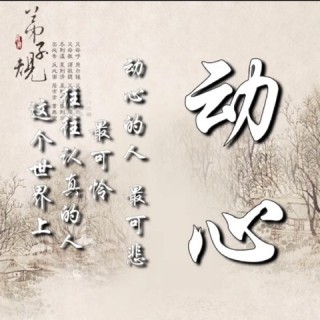 动心
这个世界上
往往认真的人
最可怜
动心的人 最可悲
弟子规